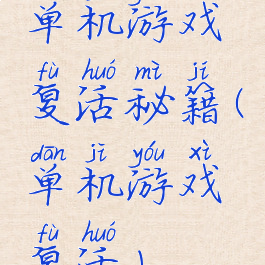 单机游戏
fù huó mì jí
复活秘籍(
dān jī yóu xì
单机游戏
fù huó
复活)